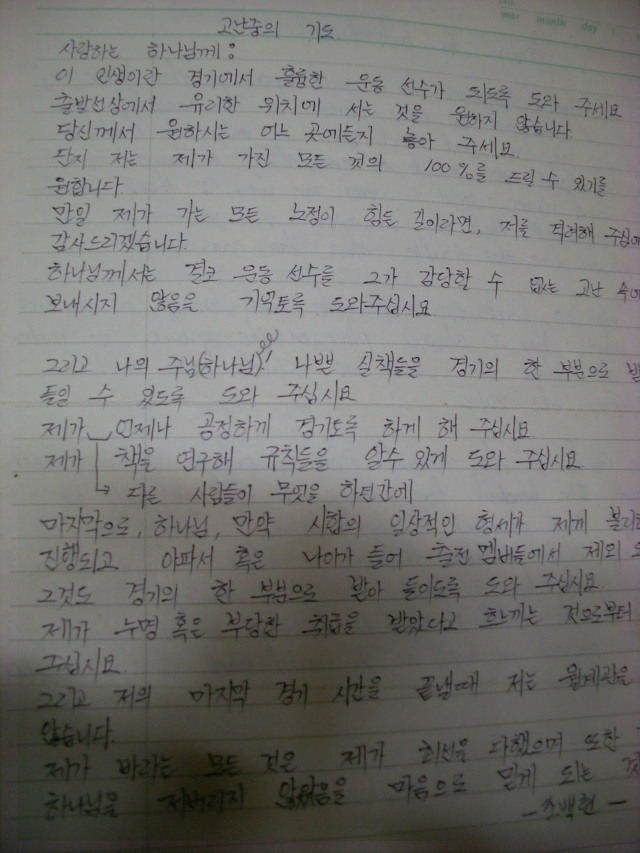 고난중의 기도
사랑하는 하나님께:
이 인생이란 경기에서 훌륭한 운동 선수가 되도록 도와 주세요
출발선상에서 유리한 위치에 서는 것을 원하지 않습니다
당신께서 원하시는 어느 곳에든지 놓아 주세요.
단지 저는 제가 가진 모든 것의 100%를 드릴 수 있기를
원합니다
만일 제가 가는 모든 노정이 힘든 길이라면, 저를 격려해 주심에
감사드리겠습니다.
하나님께서는 결코 운동 선수를 그가 감당할 수 없는 고난 속에
보내시지 않음을 기억토록 도와주십시요
그리고 나의 주님(하나님)! 나쁜 실책들을 경기의 한 부분으로 받
들일 수 있도록 도와 주십시요
제가 언제나 공정하게 경기토록 하게 해 주십시요
제가 책을 연구해 규칙들을 알수 있게 도와 주십시요
다른 사람들이 무엇을 하던간에
마지막으로, 하나님, 만약 시합의 일상적인 형세가 제게 불리한
진행되고 아파서 혹은 나이가 들어 출전 멤버들에서 제외
그것도 경기의 한 부분으로 받아 들이도록 도와 주십시요.
제가 누명 혹은 부당한 취급을 받았다고 느끼는 것으로부터
주십시요
그리고 저의 마지막 경기 시간을 끝낼때 저는 월계관을
않습니다.
제가 바라는 모든 것은 제가 최선을 다했으며 또한
하나님을 저버리지 않았음을 마음으로 믿게 되는 것
- 조백현 -